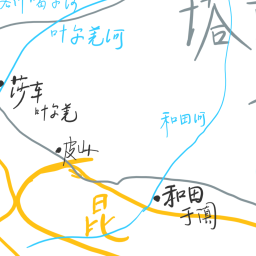 叶尔羌河
塔
莎车
叶尔羌
和田河
皮山
和田
于阗
昆